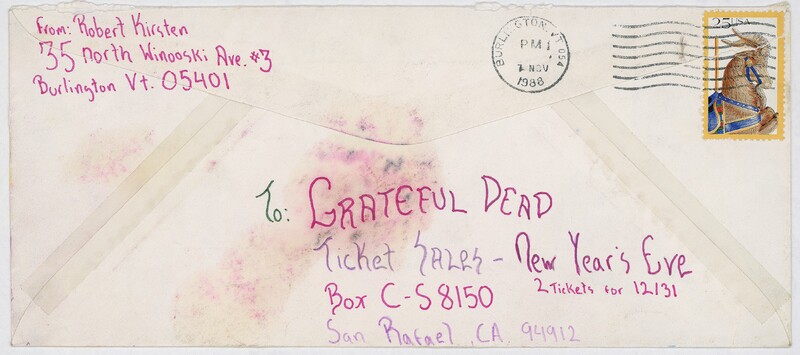 From: Robert Kirsten
35 North Winooski Ave. #3
Burlington Vt. 05401
BURLINGTON, VT 054
PM 1
7 NOV
1988
25USA
To: GRATEFUL DEAD
Ticket SALES - New Year's Eve
2 Tickets for 12/31
Box C-S 8150
San Rafael, CA. 94912